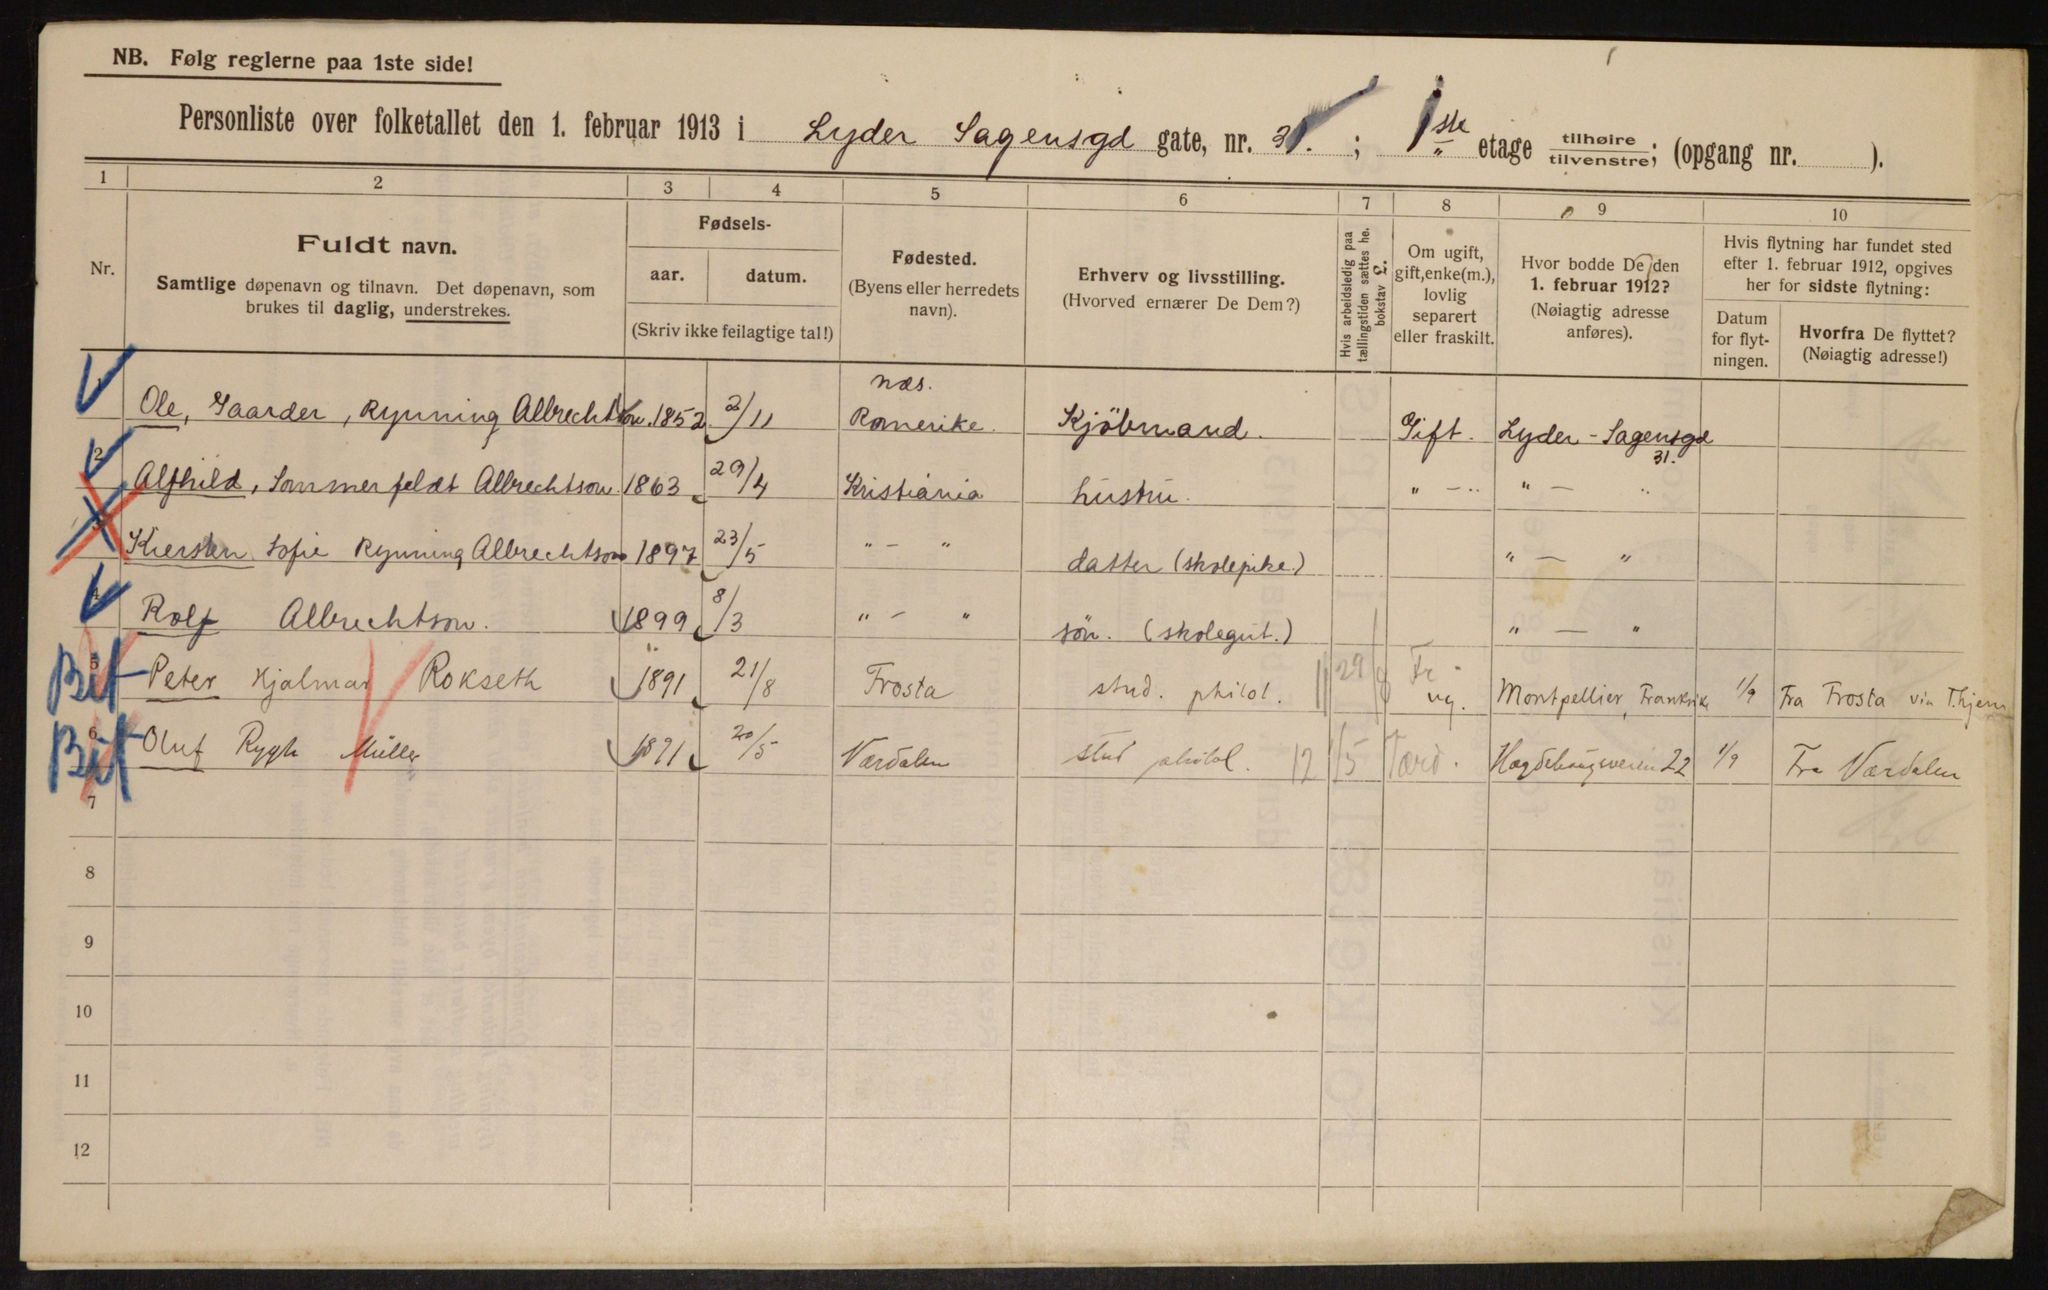 NB. Følg reglerne paa 1ste side!
Personliste over folketallet den 1. februar 1913 i Lyder Sagensgd gate, nr. 31. ; 1ste etage tilhøire tilvenstre; (opgang nr. ).
1 2 3 4 5 6 7 8 9 10
Nr.
Fuldt navn.
Samtlige døpenavn og tilnavn. Det døpenavn, som
brukes til daglig, understrekes.
Fødsels-
aar. datum.
(Skriv ikke feilagtige tal!)
Fødested.
(Byens eller herredets
navn).
Erhverv og livsstilling.
(Hvorved ernærer De Dem?)
Hvis arbeidsledig paa
tællingstiden sættes he.
bokstav L.
Om ugift,
gift, enke(m.),
lovlig
separert
eller fraskilt.
Hvor bodde De den
1. februar 1912?
(Nøiagtig adresse
anføres).
Hvis flytning har fundet sted
efter 1. februar 1912, opgives
her for sidste flytning:
Datum
for flyt-
ningen.
Hvorfra De flyttet?
(Nøiagtig adresse!)
1 Ole, Gaarder, Rynning Albrechtson. 1852 2/11 Næs. Romerike. Kjöbmand. Gift. Lyder-Sagensgd 31.
2 Alfhild, Sommerfeldt Albrechtson. 1863 29/4 Kristiania hustru. " - " " - "
3 Kiersten Sofie Rynning Albrechtson 1897 23/5 " - " datter (skolepike.) " - "
4 Rolf Albrechtson. 1899 8/3 " - " sön. (skolegut.) " - "
5 Peter Hjalmar Rokseth 1891 21/8 Frosta stud. philol. 11 29/8 Fr ug. Montpellier, Frankrike 1/9 Fra Frosta via Thjem
6 Oluf Rygh Müller 1891 20/5 Værdalen stud philol. 12 1/5 Værd. Hægdehaugsveien 22 1/9 Fra Værdalen
7
8
9
10
11
12